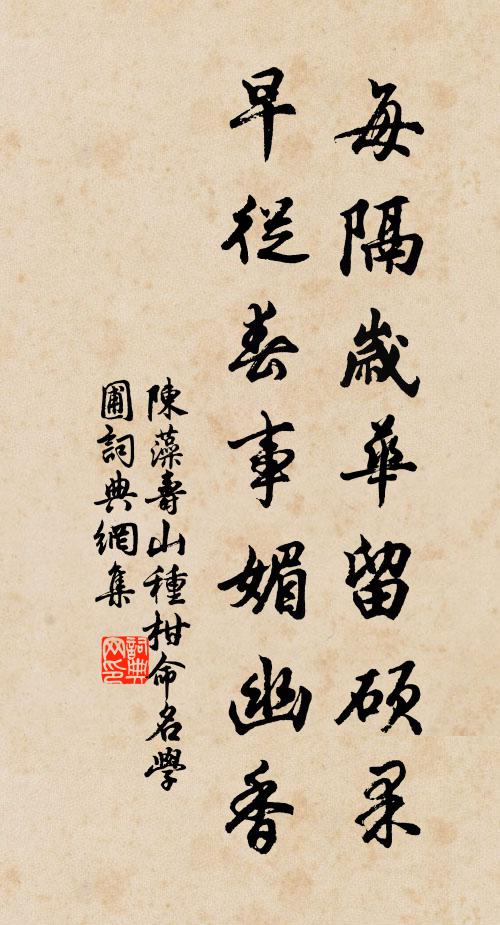 每隔歲華留碩果
早從春事媚幽香
陳藻壽山種柑命名學
圃詞典網集
詞典
网印